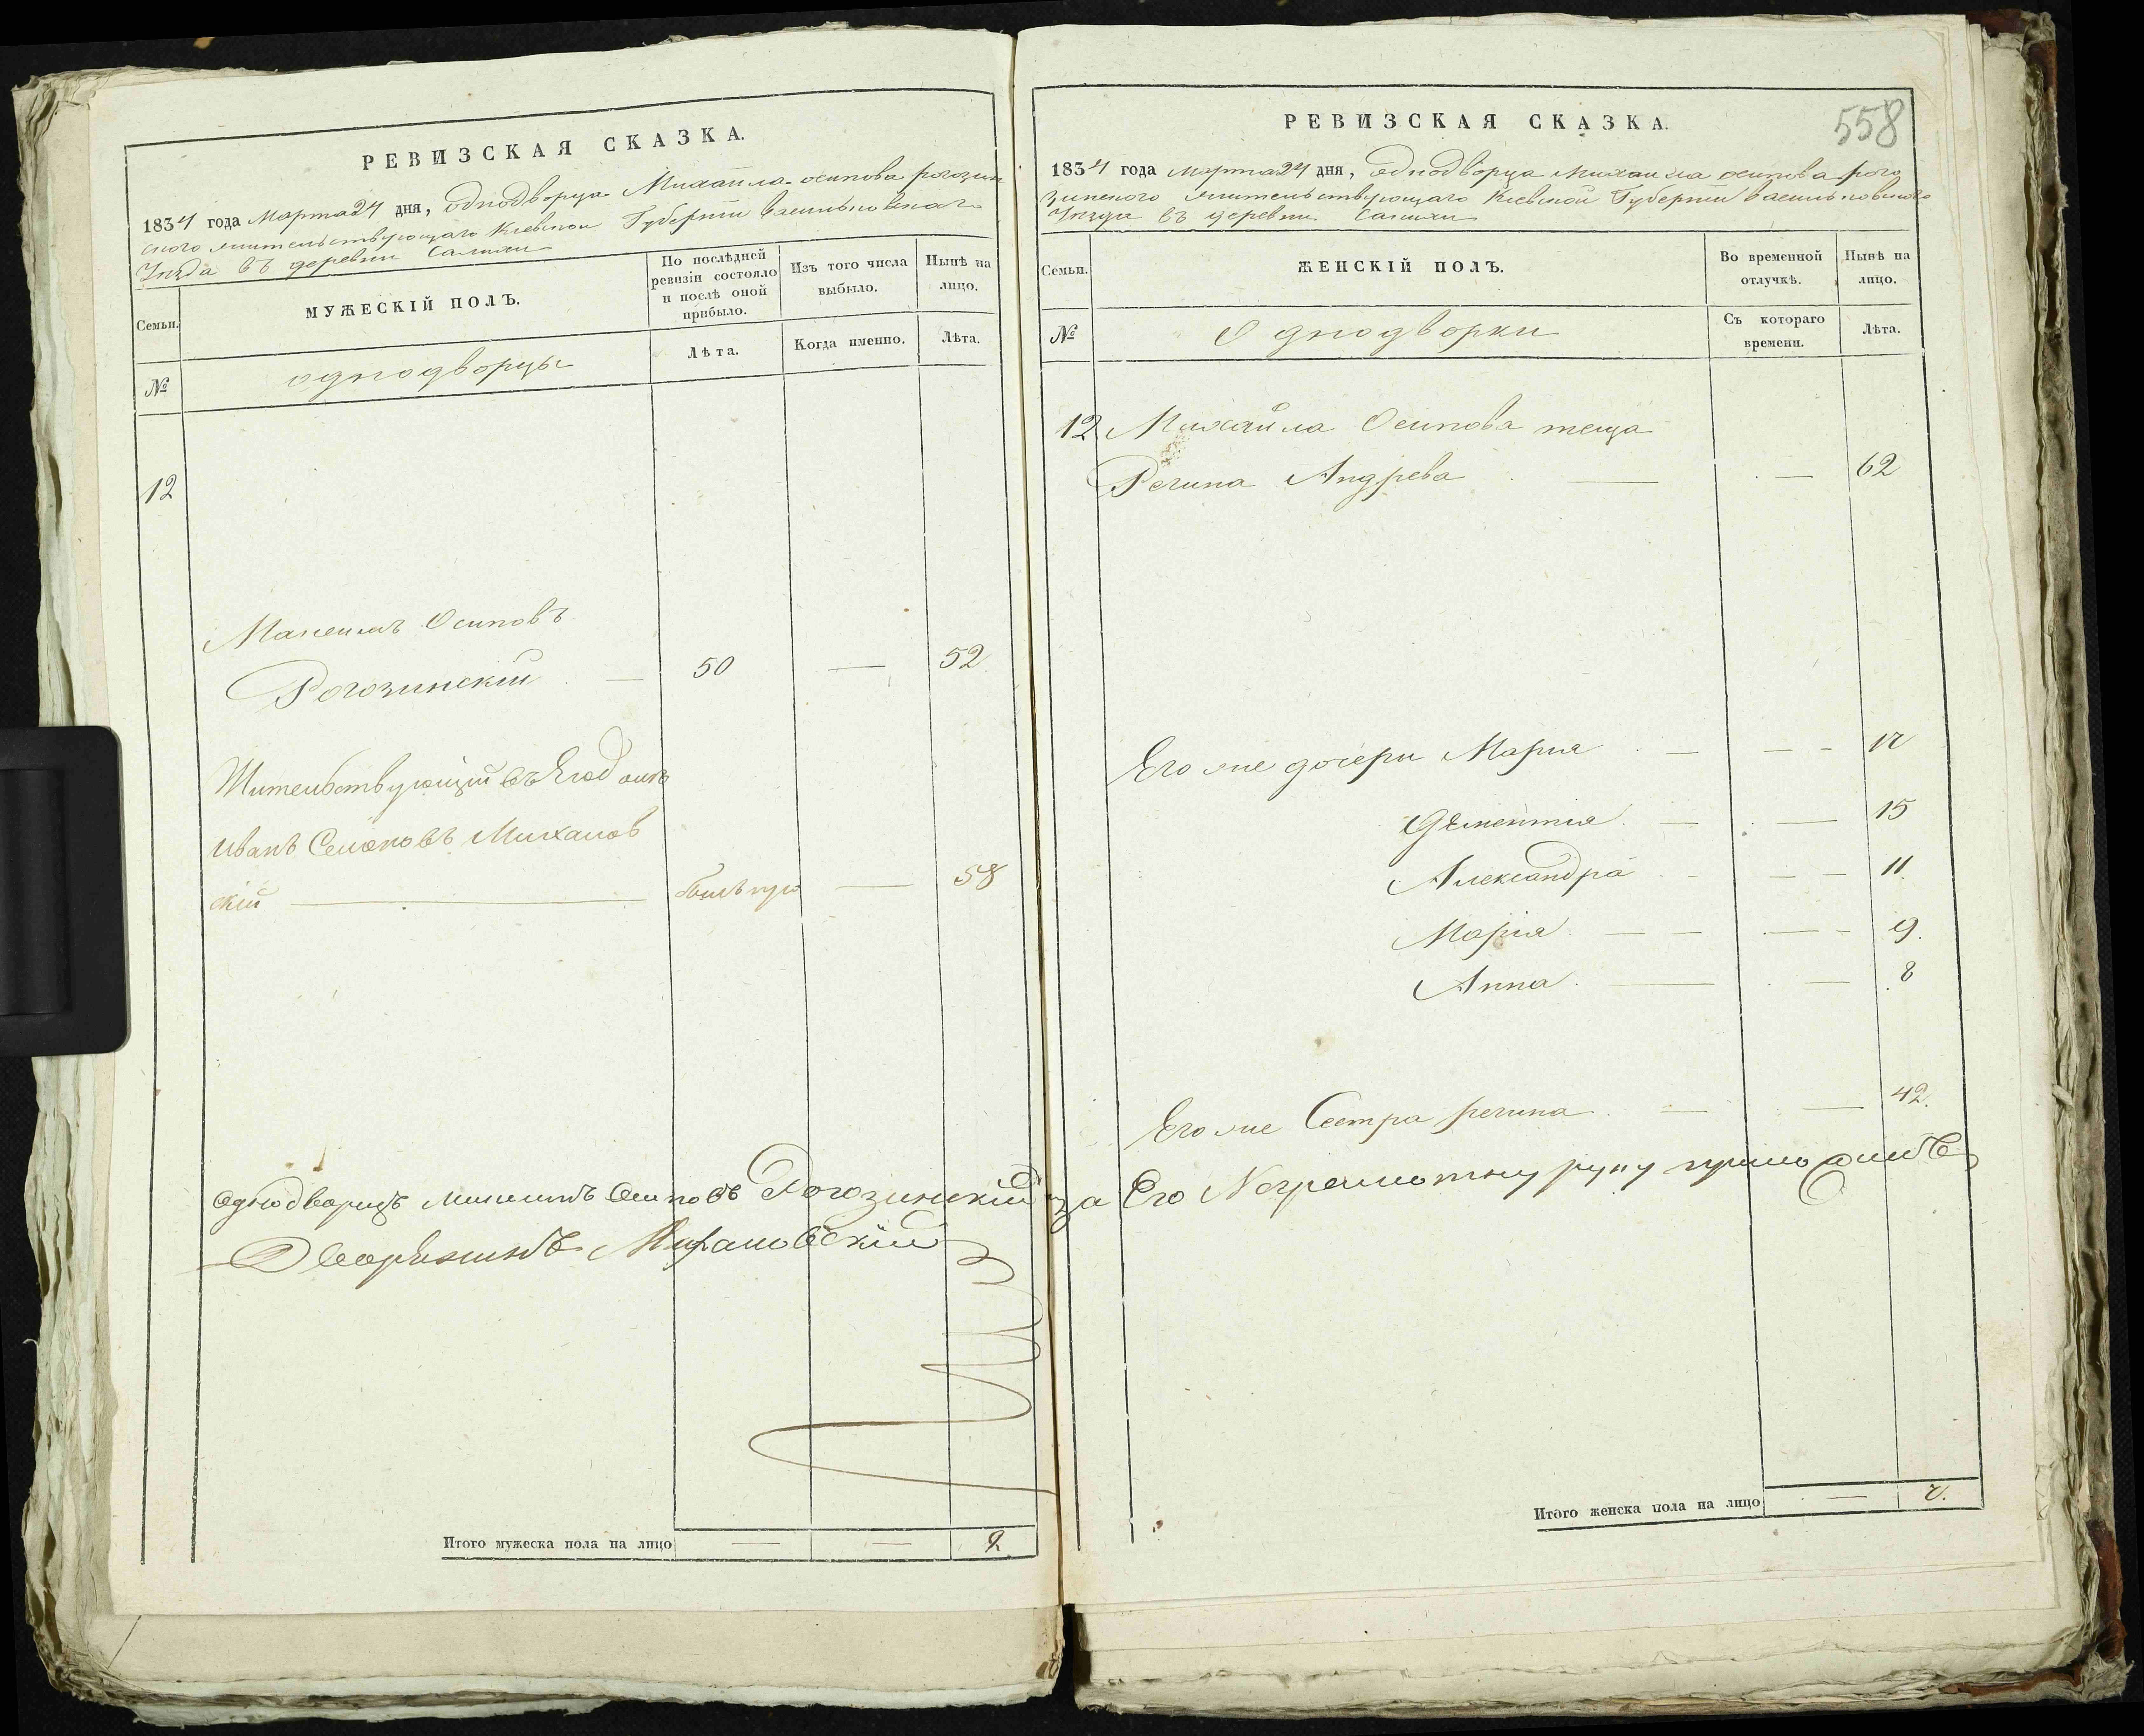 РЕВИЗСКАЯ СКАЗКА.
1834 года марта 24 дня, однодворца Михаила осипова рогозин
ского жительствующаго Киевской Губернии васильковскаго
Уезда въ деревни
Семьи.
МУЖЕСКІЙ ПОЛЪ.
По послѣдней ревизіи состояло и послѣ оной прибыло.
Изъ того числа выбыло.
Нынѣ на лицо.
№
однодворцы
Лѣта.
Когда именно.
Лѣта.
12
Осиповъ
Рогозинскій — 50 — 52
Жительствующій въ
иванъ Михалов
скій — — 58
однодворецъ Осиповъ Рогозинскій за Его Неграмотну руку
Дворянинъ
Итого мужеска пола на лицо — — 2.
558
РЕВИЗСКАЯ СКАЗКА.
1834 года марта 24 дня, однодворца Михаила осипова рого
зинского жительствующаго Киевской Губернии васильковского
Уезда въ деревни
Семьи.
ЖЕНСКІЙ ПОЛЪ.
Во временной отлучкѣ.
Нынѣ на лицо.
№
Однодворки
Съ котораго времени.
Лѣта.
12 Михаила Осипова теща
Регина Андрева — — 62
Его же дочери Мария — — —
— — 15
Александра — — — 11
Марія — — — — 9.
Анна — — 8
Его же Сестра регина — — 42.
Итого женска пола на лицо —